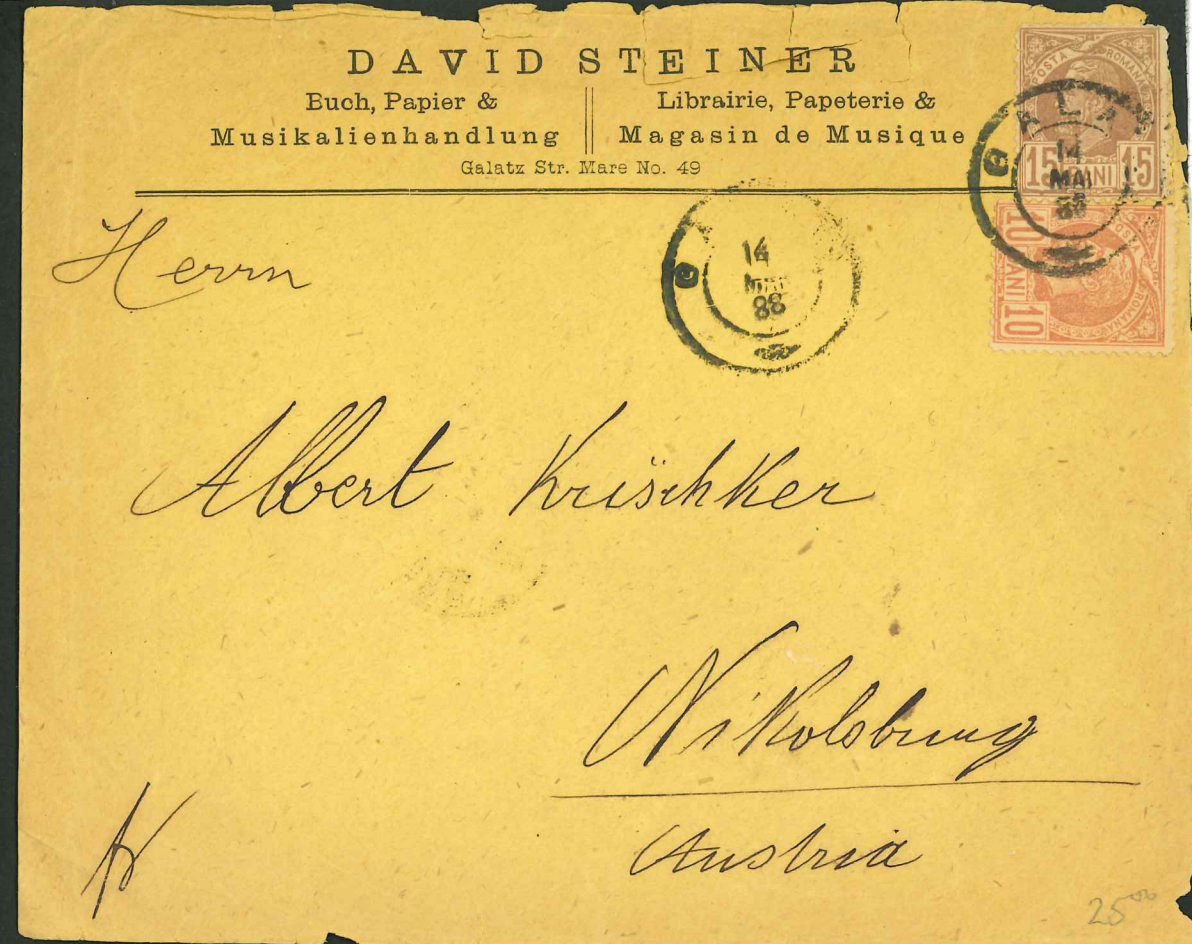 DAVID STEINER
Buch, Papier &
Musikalienhandlung
Librairie, Papeterie &
Magasin de Musique
Galatz Str. Mare No. 49
POSTA ROMANA
15 BANI 15
GALA
14
MAI
88
10 BANI 10
POSTA ROMANA
G
14
MAI
88
Herrn
Albert Krischker
Nikolsburg
Austria
25⁰⁰